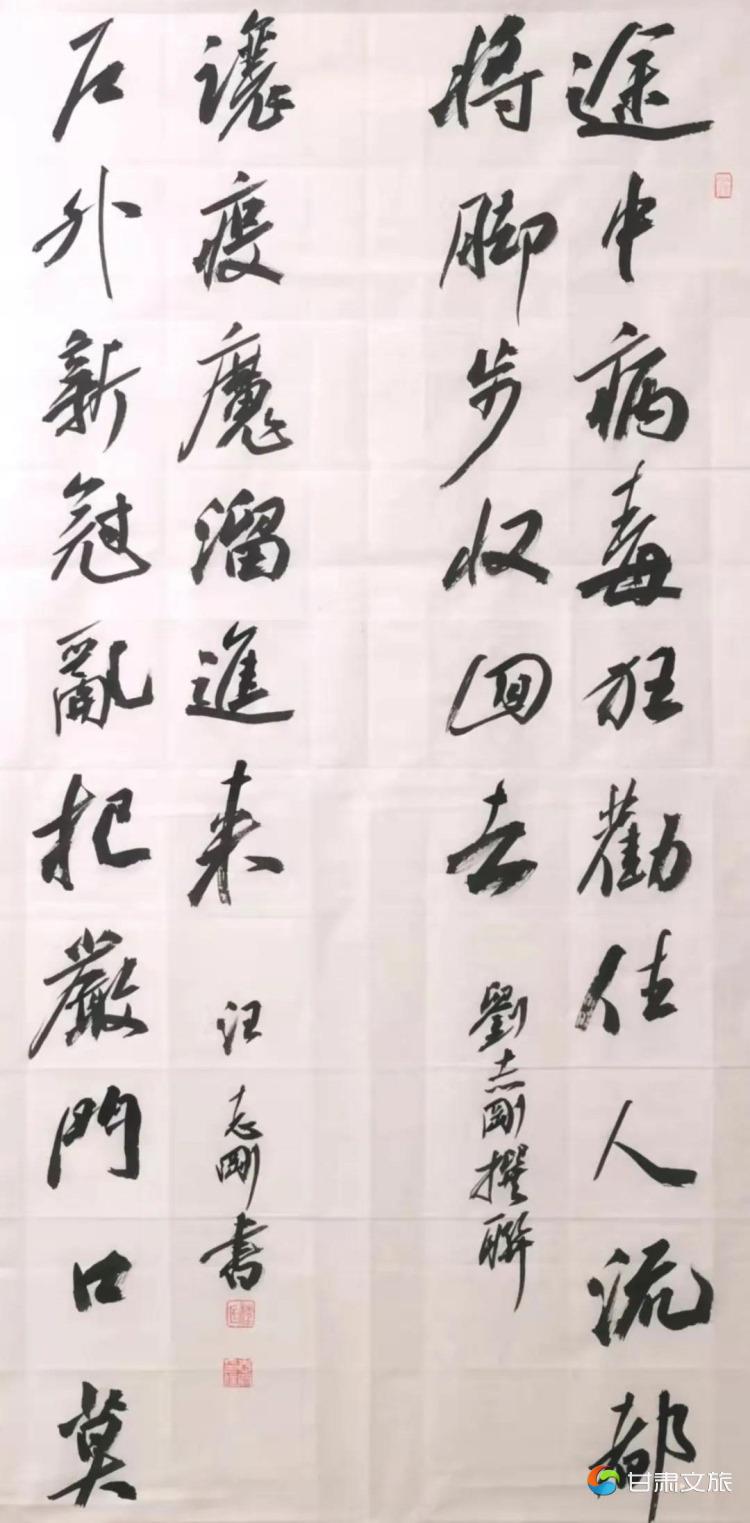 途中病毒狂勸住人流都
將脚步收回去
劉志剛撰聯
户外新冠亂把嚴門口莫
讓疫魔溜進来
汪志剛書
甘肃文旅